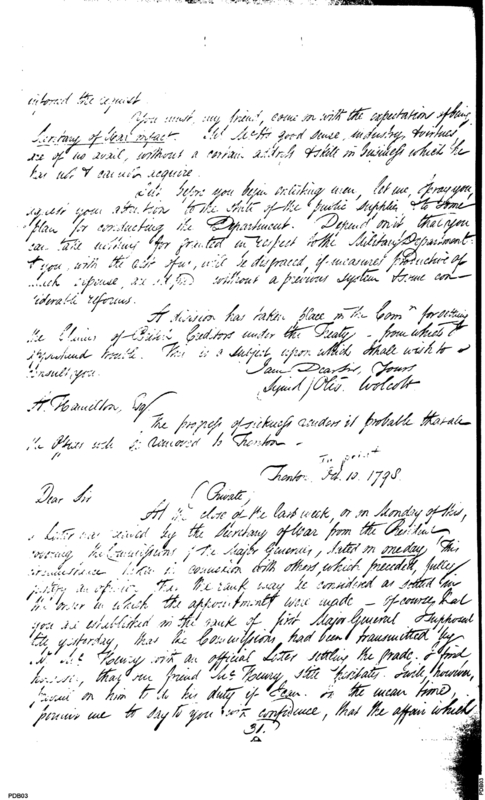 informed the request.
You must, my friend, come on with the expectations of being
Secretary of War in fact. Mr. McH's good sense, industry & virtues,
are of no avail, without a certain address & skill in business which he
has not & cannot acquire.
But before you begin enlisting men, let me, I pray you
request your attention to the state of the public supplies & to some
plan for conducting the Department. Depend on it that you
can take nothing for granted in respect to the Military Department
& you, with the rest of us, will be disgraced, if measures productive of
much expense, are without a previous system & some con-
siderable reforms.
A division has taken place in the Comn for settling
the Claims of British Creditors under the Treaty - from which I
apprehend trouble. This is a subject upon which I shall wish to
consult you.
I am Dear Sir, Yours
Signed / Oliv. Wolcott
A. Hamilton, Esq
The progress of sickness renders it probable that all
the Offices will be removed to Trenton -
In print
Trenton 10. 1798.
Dear Sir (Private,
At the close of the last week, or on Monday of this,
a Letter was received by the Secretary of War from the President
covering the Commissions of the Major Generals, dated on one day. This
circumstance taken in connexion with others, which preceded, fully
justify an opinion that the rank may be considered as settled by
the order in which the appointments were made - of course that
you are established in the rank of first Major General. I supposed
till yesterday, that the Commissions, had been transmitted by
Mr. McHenry with an official Letter settling the grade. I find
however, that our friend McHenry, still hesitates. I will, however,
prevail on him to do his duty if I can. In the mean time,
permit me to say to you with confidence, that the affair which
31.
PDB03
PDB03